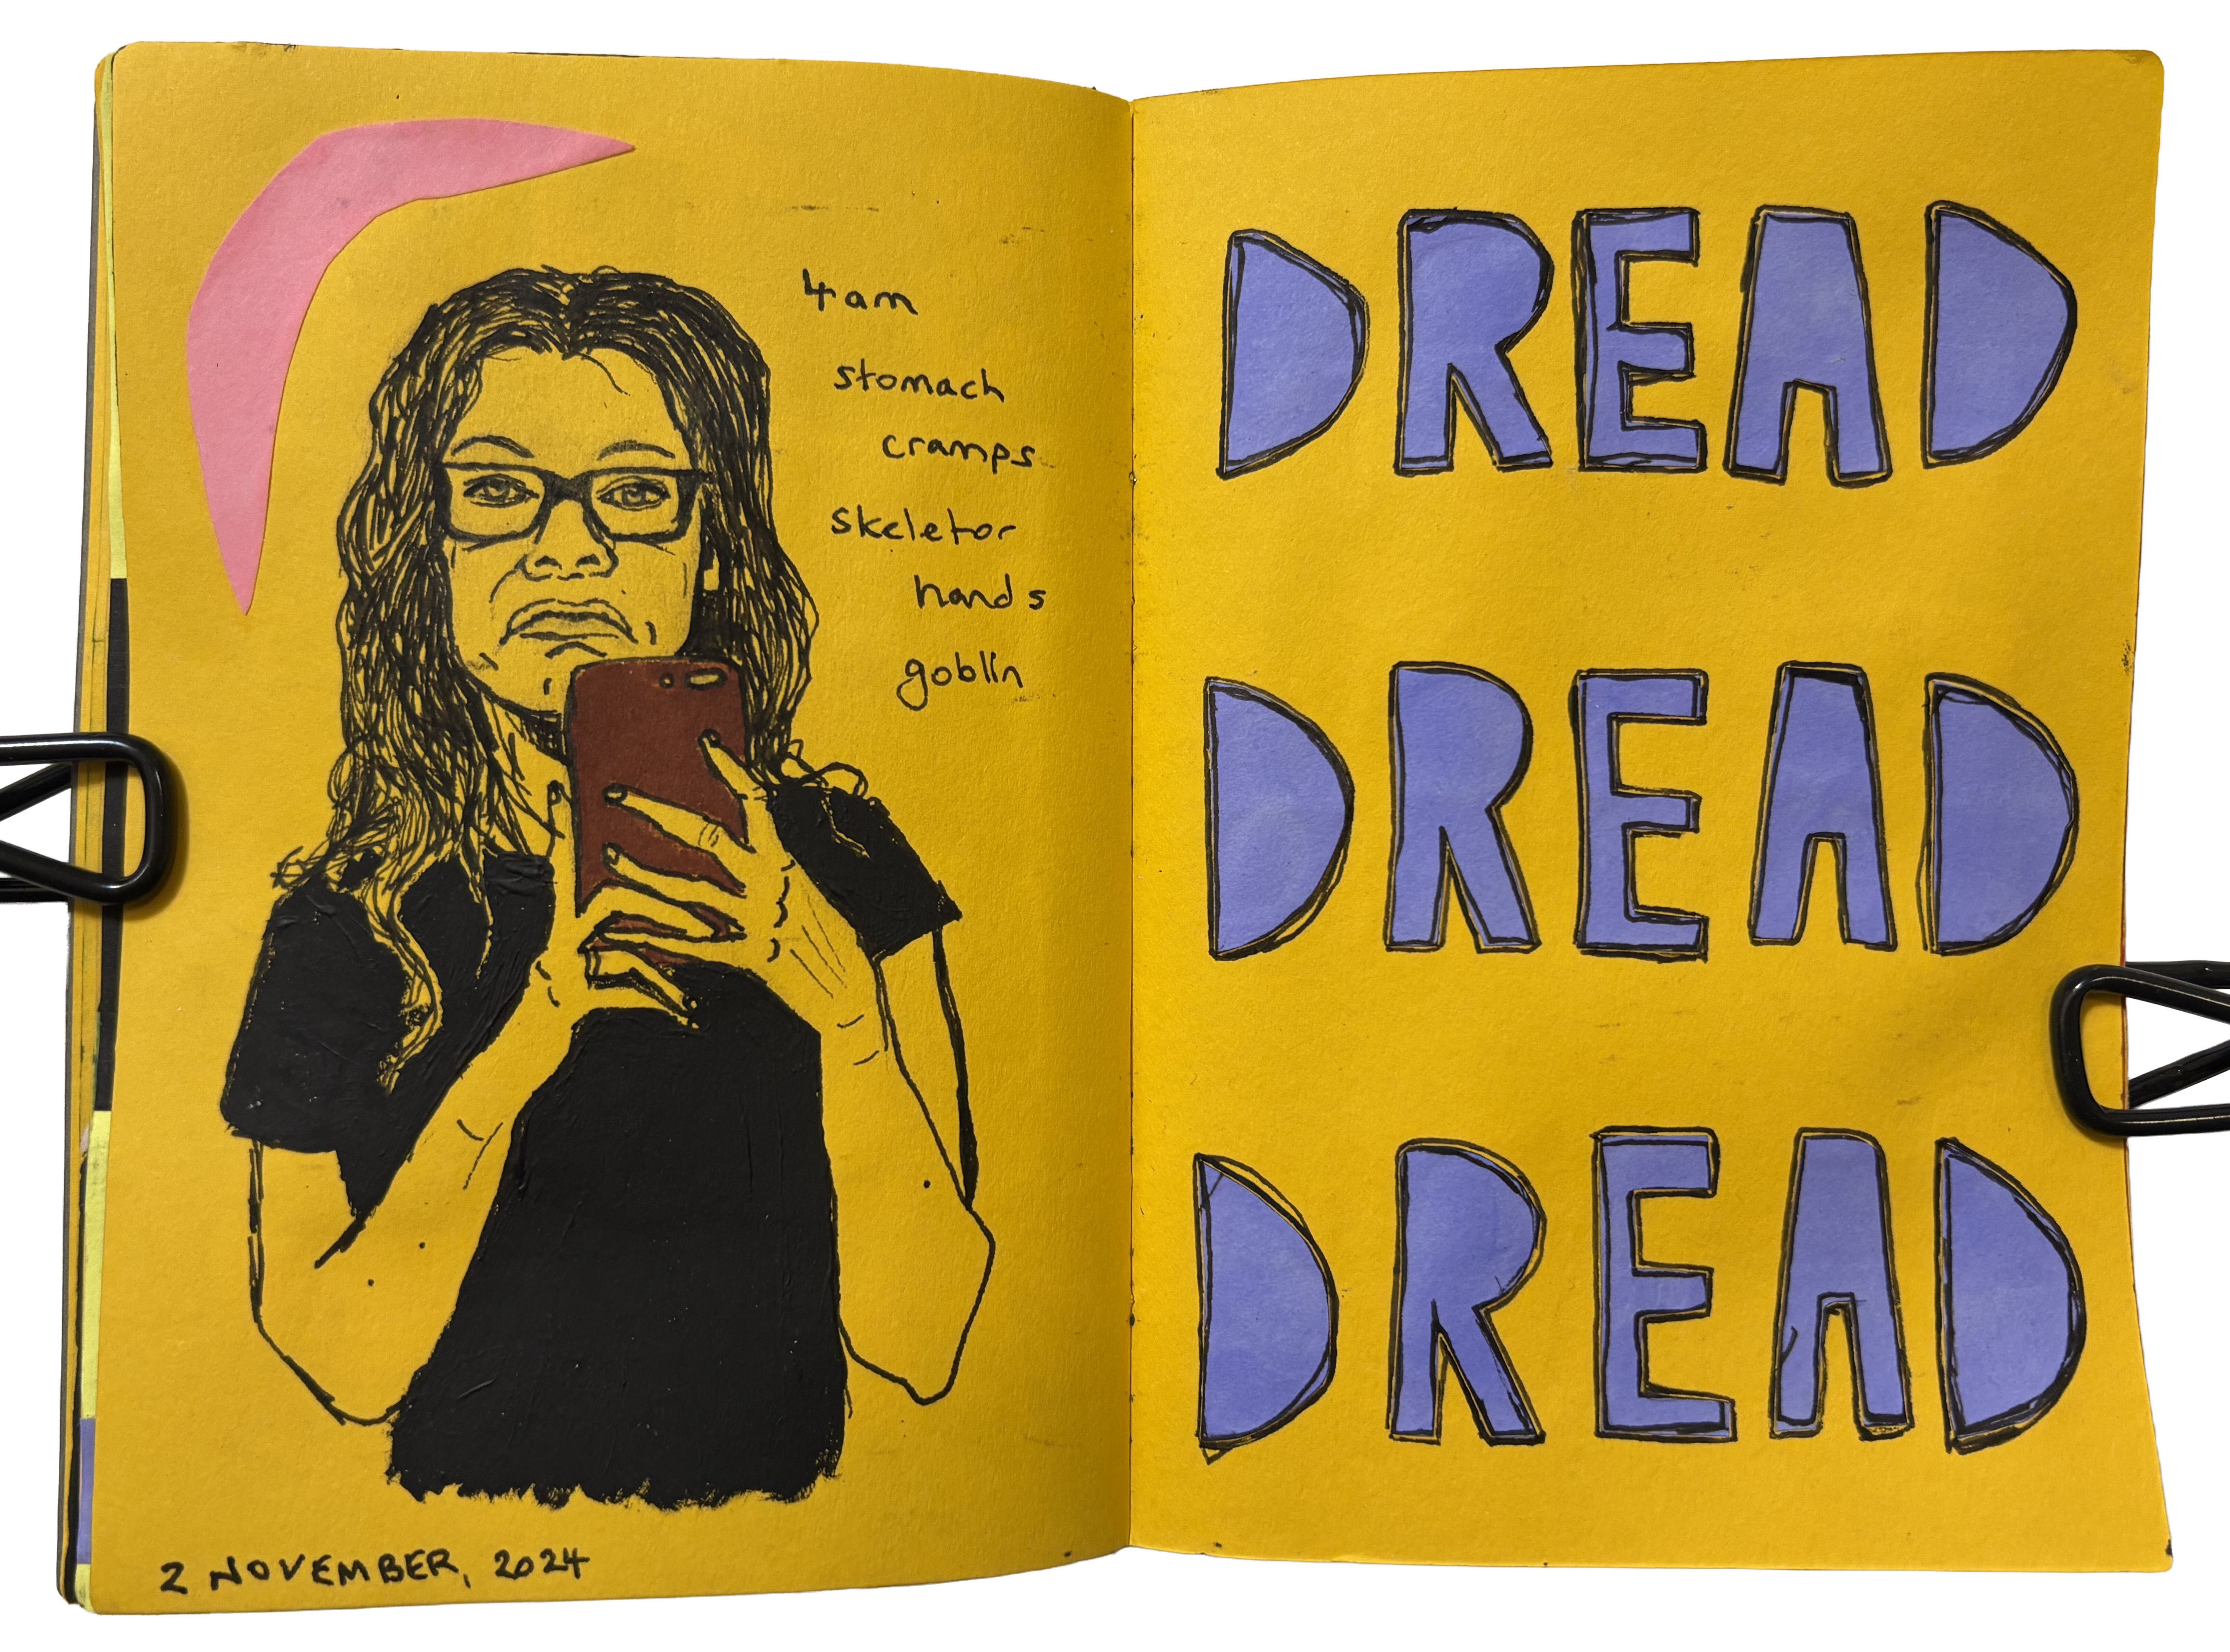 4am
stomach
cramps
skeletor
hands
goblin
2 NOVEMBER, 2024
DREAD
DREAD
DREAD